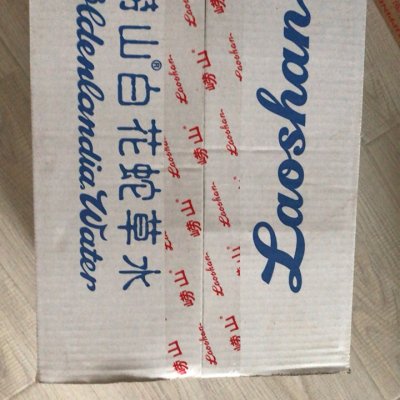 Laoshan
崂山®白花蛇草水
oldenlandia Water
崂山 Laoshan
崂山 Laoshan
崂山 Laoshan
崂山 Laoshan
崂山 Laoshan
崂山 Laoshan